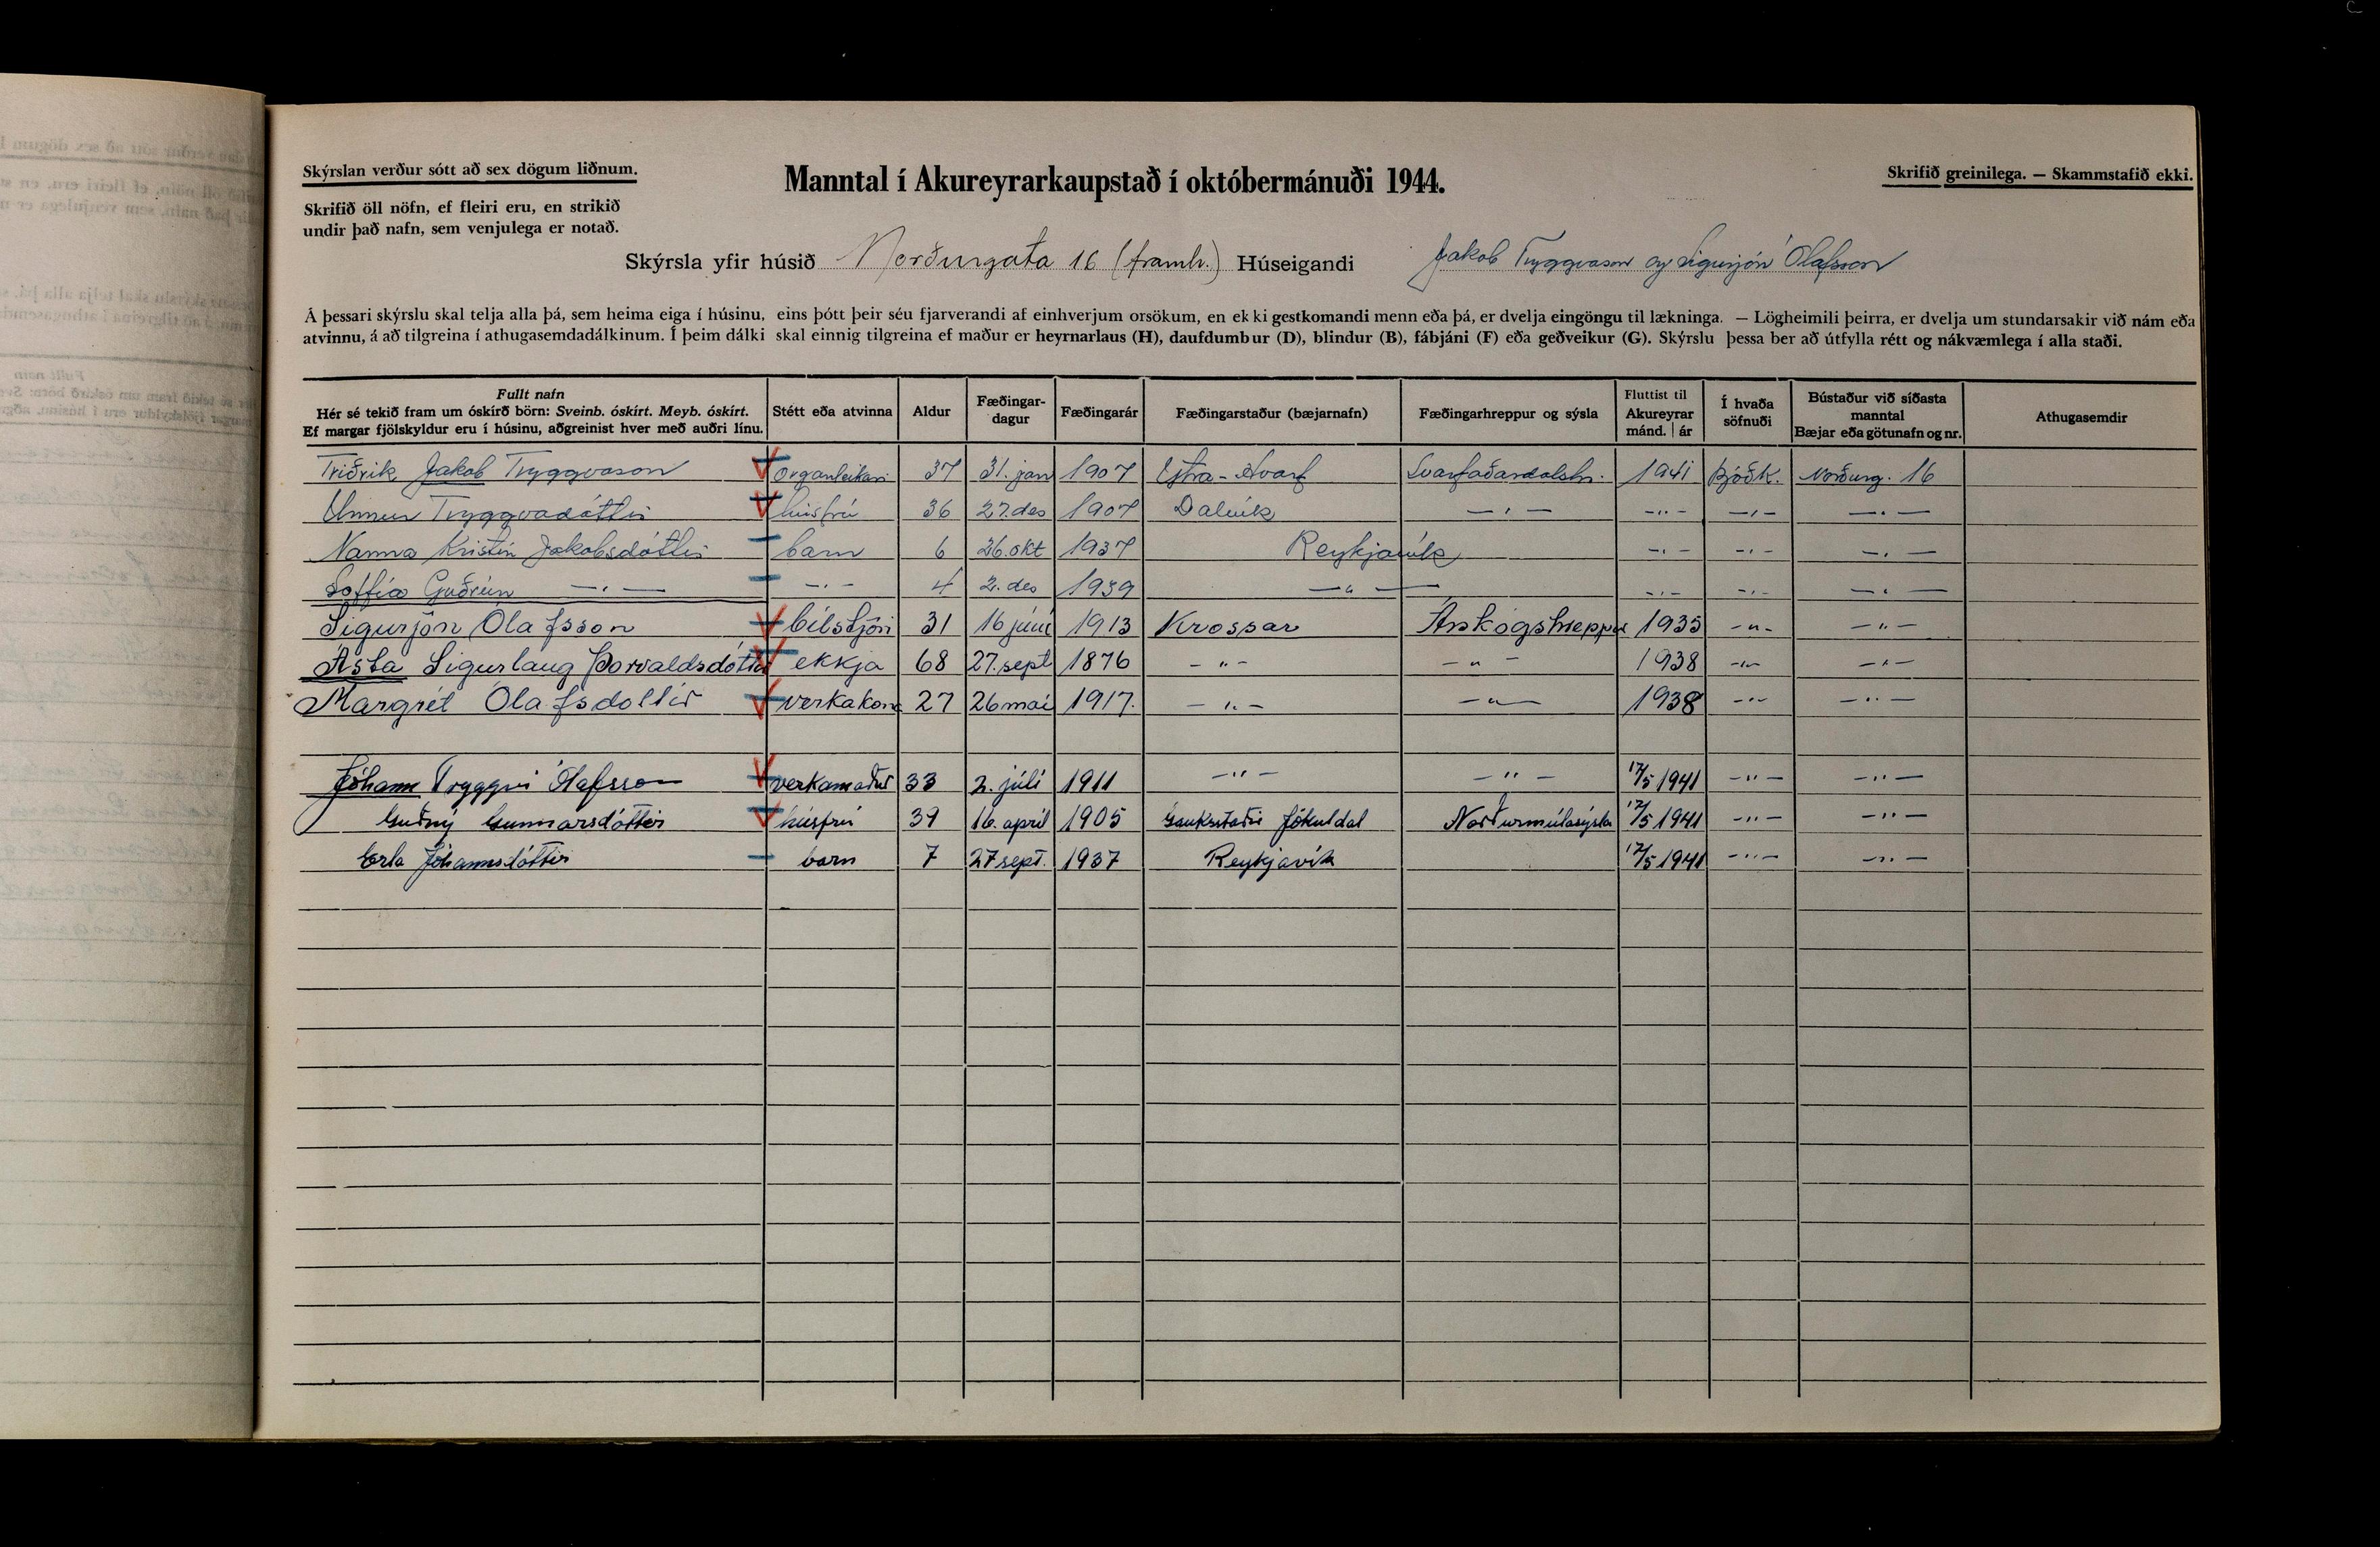 Skýrslan verður sótt að sex dögum liðnum.
Skrifið öll nöfn, ef fleiri eru, en strikið
undir það nafn, sem venjulega er notað.
Manntal í Akureyrarkaupstað í októbermánuði 1944.
Skrifið greinilega. — Skammstafið ekki.
Skýrsla yfir húsið Norðurgata 16 (framh.) Húseigandi Jakob Tryggvason og Sigurjón Ólafsson
Á þessari skýrslu skal telja alla þá, sem heima eiga í húsinu, eins þótt þeir séu fjarverandi af einhverjum orsökum, en ekki gestkomandi menn eða þá, er dvelja eingöngu til lækninga. — Lögheimili þeirra, er dvelja um stundarsakir við nám eða
atvinnu, á að tilgreina í athugasemdadálkinum. Í þeim dálki skal einnig tilgreina ef maður er heyrnarlaus (H), daufdumbur (D), blindur (B), fábjáni (F) eða geðveikur (G). Skýrslu þessa ber að útfylla rétt og nákvæmlega í alla staði.
Fullt nafn
Hér sé tekið fram um óskírð börn: Sveinb. óskírt. Meyb. óskírt.
Ef margar fjölskyldur eru í húsinu, aðgreinist hver með auðri línu.
Stétt eða atvinna
Aldur
Fæðingar-
dagur
Fæðingarár
Fæðingarstaður (bæjarnafn)
Fæðingarhreppur og sýsla
Fluttist til
Akureyrar
mánd. | ár
Í hvaða
söfnuði
Bústaður við síðasta
manntal
Bæjar eða götunafn og nr.
Athugasemdir
Friðrik Jakob Tryggvason organleikari 37 31. jan 1907 Ytra-Hvarf Svarfaðardalshr. 1941 Þjóðk. Norðurg. 16
Unnur Tryggvadóttir húsfrú 36 27. des 1907 Dalvík —〃— —〃— —〃— —〃—
Nanna Kristín Jakobsdóttir barn 6 26. okt 1937 Reykjavík —〃— —〃— —〃—
Soffía Guðrún —〃— —〃— 4 2. des 1939 —〃— —〃— —〃— —〃—
Sigurjón Ólafsson bílstjóri 31 16 júní 1913 Krossar Árskógshreppur 1935 —〃— —〃—
Ásta Sigurlaug Þorvaldsdóttir ekkja 68 27. sept 1876 —〃— —〃— 1938 —〃— —〃—
Margrét Ólafsdóttir verkakona 27 26 maí 1917. —〃— —〃— 1938 —〃— —〃—
Jóhann Tryggvi Ólafsson verkamaður 33 2. júlí 1911 —〃— —〃— 12/5 1941 —〃— —〃—
Guðný Gunnarsdóttir húsfrú 39 16. apríl 1905 Gauksstaðir Jökuldal Norðurmúlasýsla 12/5 1941 —〃— —〃—
Erla Jóhannsdóttir barn 7 27 sept. 1937 Reykjavík 12/5 1941 —〃— —〃—